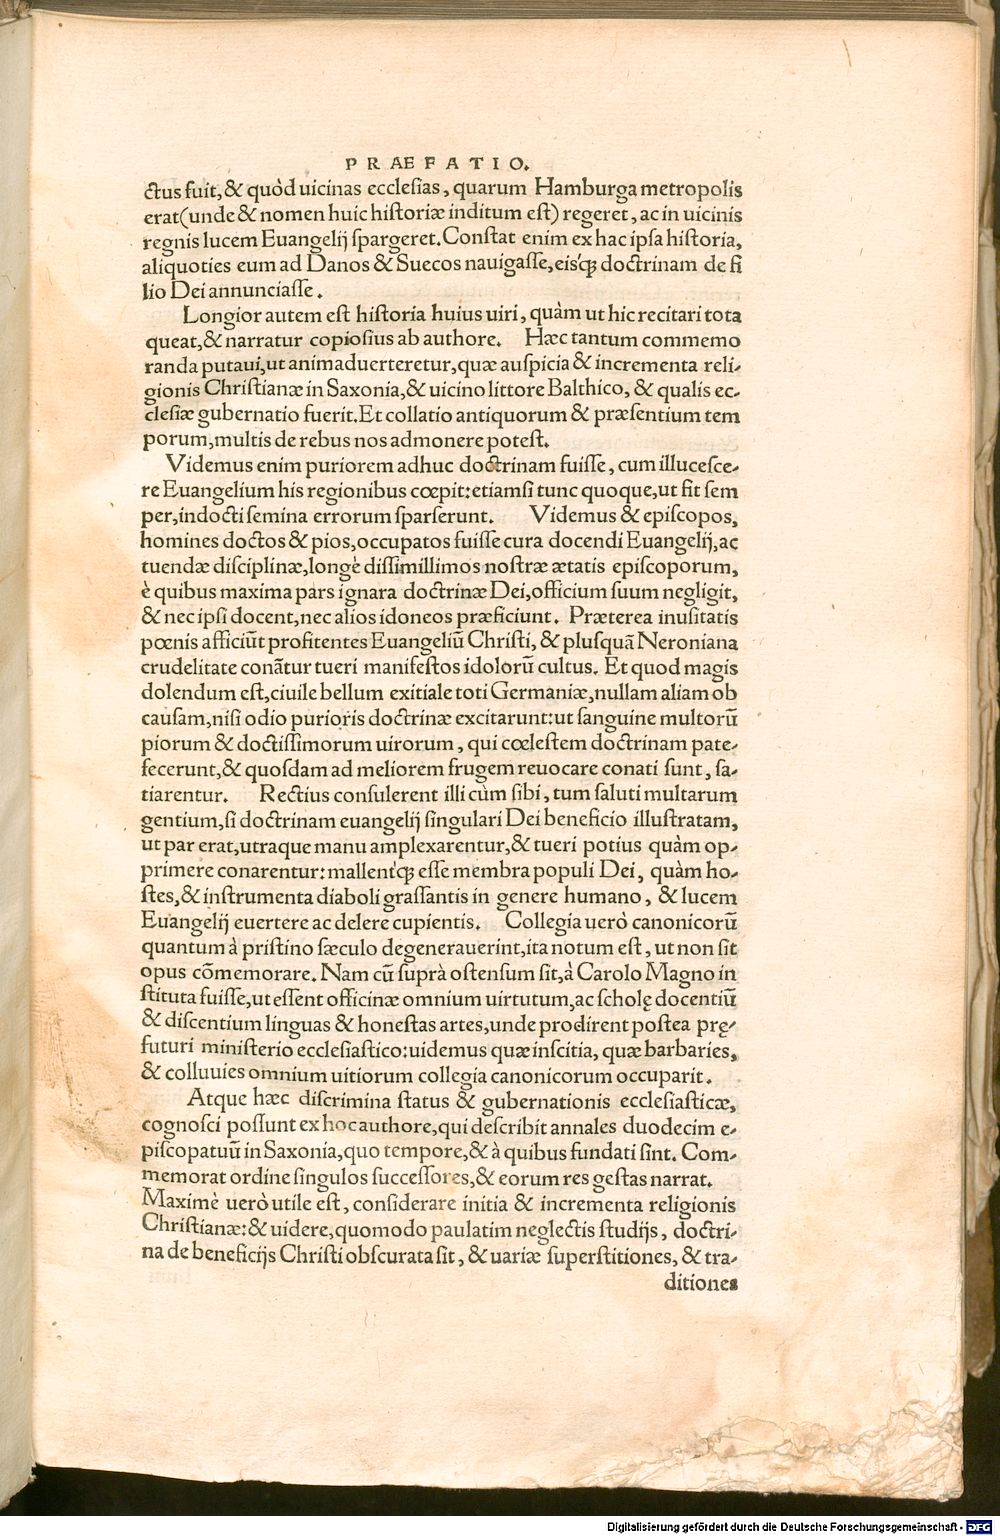 PRAEFATIO.
ctus fuit, & quòd uicinas ecclesias, quarum Hamburga metropolis
erat (unde & nomen huic historiæ inditum est) regeret, ac in uicinis
regnis lucem Euangelij spargeret. Constat enim ex hac ipsa historia,
aliquoties eum ad Danos & Suecos nauigasse, eisq́; doctrinam de fi
lio Dei annunciasse.
Longior autem est historia huius uiri, quàm ut hic recitari tota
queat, & narratur copiosius ab authore. Hæc tantum commemo
randa putaui, ut animaduerteretur, quæ auspicia & incrementa reli-
gionis Christianæ in Saxonia, & uicino littore Balthico, & qualis ec-
clesiæ gubernatio fuerit. Et collatio antiquorum & præsentium tem
porum, multis de rebus nos admonere potest.
Videmus enim puriorem adhuc doctrinam fuisse, cum illucesce-
re Euangelium his regionibus cœpit: etiamsi tunc quoque, ut fit sem
per, indocti semina errorum sparserunt. Videmus & episcopos,
homines doctos & pios, occupatos fuisse cura docendi Euangelij, ac
tuendæ disciplinæ, longè dissimillimos nostræ ætatis episcoporum,
è quibus maxima pars ignara doctrinæ Dei, officium suum negligit,
& nec ipsi docent, nec alios idoneos præficiunt. Præterea inusitatis
pœnis afficiūt profitentes Euangeliū Christi, & plusquā Neroniana
crudelitate conātur tueri manifestos idolorū cultus. Et quod magis
dolendum est, ciuile bellum exitiale toti Germaniæ, nullam aliam ob
causam, nisi odio purioris doctrinæ excitarunt: ut sanguine multorū
piorum & doctissimorum uirorum, qui cœlestem doctrinam pate-
fecerunt, & quosdam ad meliorem frugem reuocare conati sunt, sa-
tiarentur. Rectius consulerent illi cùm sibi, tum saluti multarum
gentium, si doctrinam euangelij singulari Dei beneficio illustratam,
ut par erat, utraque manu amplexarentur, & tueri potius quàm op-
primere conarentur: mallentq́; esse membra populi Dei, quàm ho-
stes, & instrumenta diaboli grassantis in genere humano, & lucem
Euangelij euertere ac delere cupientis. Collegia uerò canonicorū
quantum à pristino sæculo degenerauerint, ita notum est, ut non sit
opus cōmemorare. Nam cū suprà ostensum sit, à Carolo Magno in
stituta fuisse, ut essent officinæ omnium uirtutum, ac scholę docentiū
& discentium linguas & honestas artes, unde prodirent postea prę-
futuri ministerio ecclesiastico: uidemus quæ inscitia, quæ barbaries,
& colluuies omnium uitiorum collegia canonicorum occuparit.
Atque hæc discrimina status & gubernationis ecclesiasticæ,
cognosci possunt ex hoc authore, qui describit annales duodecim e-
piscopatuū in Saxonia, quo tempore, & à quibus fundati sint. Com-
memorat ordine singulos successores, & eorum res gestas narrat.
Maximè uerò utile est, considerare initia & incrementa religionis
Christianæ: & uidere, quomodo paulatim neglectis studijs, doctri-
na de beneficijs Christi obscurata sit, & uariæ superstitiones, & tra-
ditiones
Digitalisierung gefördert durch die Deutsche Forschungsgemeinschaft - DFG